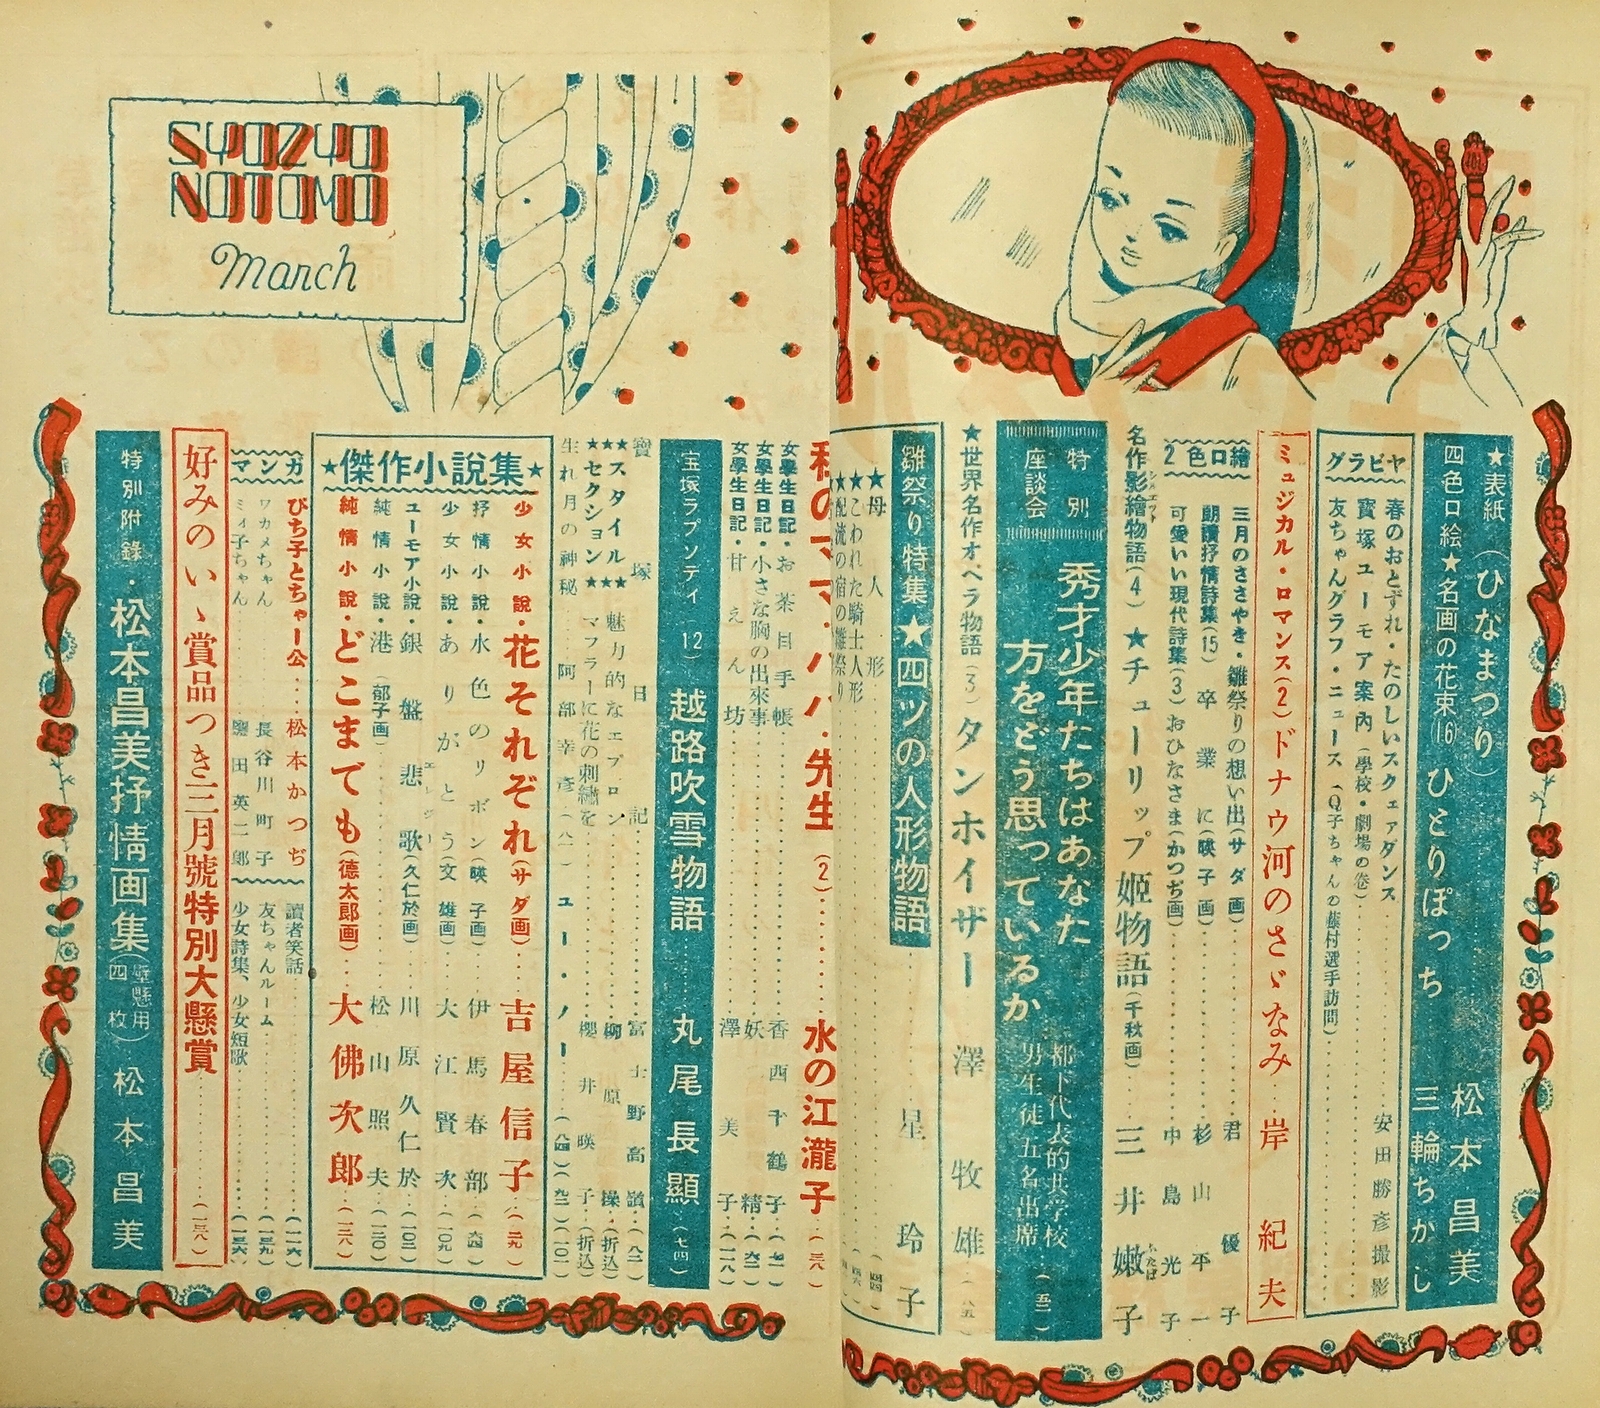 ★表紙(ひなまつり) 松本昌美
四色口絵★名画の花束(16) ひとりぽっち 三輪ちかし
グラビヤ
春のおとずれ・たのしいスクェアダンス 安田勝彦撮影
寳塚ユーモア案內(學校・劇場の卷)
友ちゃんグラフ・ニュース(Q子ちゃんの藤村選手訪問)
ミュジカル・ロマンス(2)ドナウ河のさゞなみ 岸紀夫
2色口繪
三月のささやき・雛祭りの想い出(サダ画) 君優子
朗讀抒情詩集(15) 卒業に(暎子画) 杉山平一
可愛いい現代詩集(3)おひなさま(かつぢ画) 中島光子
名作影繪物語(4)★チューリップ姬物語(千秋画) 三井嫩子
特別座談会
秀才少年たちはあなた方をどう思っているか
都下代表的共学校
男生徒五名出席 (五二)
★世界名作オペラ物語(3)タンホイザー 澤牧雄
雛祭り特集★四ツの人形物語 星玲子
★母人形
★★こわれた騎士人形
私のママ・パパ・先生(2) 水の江瀧子
女學生日記・お茶目手帳 香西千鶴子
女學生日記・小さな胸の出來事 妖精
女學生日記・甘えん坊 澤美子 (一一八)
宝塚ラプソディ(12) 越路吹雪物語 丸尾長顯 (七四)
寶塚日記 富士野高嶺 (八二)
★★★スタイル★★★ 魅力的なエプロン 柳原操 (折込)
★セクション★ マフラーに花の刺繡を 櫻井暎子 (折込)
生れ月の神秘 阿部幸彦 ユー・ノー
★傑作小說集★
少女小說・花それぞれ(サダ画) 吉屋信子
抒情小說・水色のリボン(暎子画) 伊馬春部
少女小說・ありがとう(文雄画) 大江賢次 (一〇九)
ユーモア小說・銀盤悲歌(久仁於画) 川原久仁於
純情小說・港(郁子画) 松山照夫
純情小說・どこまでも(德太郎画) 大佛次郎
マンガ
びち子とちゃー公 松本かつぢ
ワカメちゃん 長谷川町子
ミィ子ちゃん 田英二郎
讀者笑話 (一一六)
友ちゃんルーム (一三九)
少女詩集、少女短歌
好みのいゝ賞品つき三月號特別大懸賞
特別附錄・松本昌美抒情画集(壁懸用四枚) 松本昌美
SYOZYO
NOTOMO
March